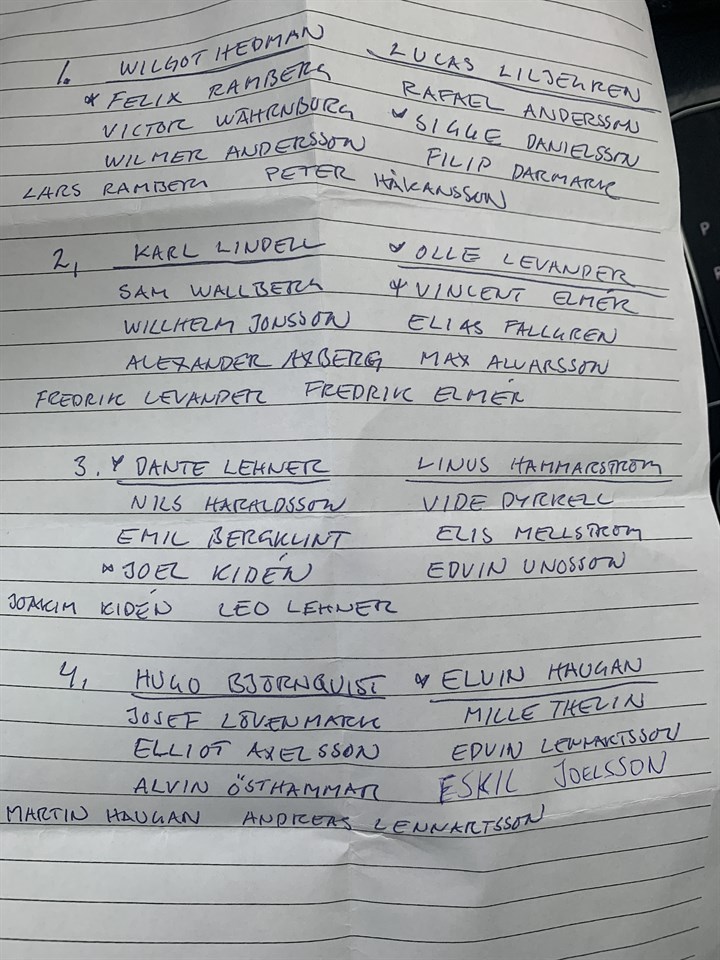 1. WILGOT HEDMAN LUCAS LILJEGREN
* FELIX RAMBERG RAFAEL ANDERSSON
VICTOR WÄHRNBORG * SIGGE DANIELSSON
WILMER ANDERSSON FILIP DARMARK
LARS RAMBERG PETER HÅKANSSON
2, KARL LINDELL * OLLE LEVANDER
SAM WALLBERG * VINCENT ELMÉR
WILLHELM JONSSON ELIAS FALLGREN
ALEXANDER AXBERG MAX ALVARSSON
FREDRIK LEVANDER FREDRIK ELMÉR
3. * DANTE LEHNER LINUS HAMMARSTROM
NILS HARALDSSON VIDE DYRKELL
EMIL BERGKLINT ELIS MELLSTROM
* JOEL KIDÉN EDVIN UNOSSON
JOAKIM KIDÉN LEO LEHNER
4, HUGO BJORNQUIST * ELVIN HAUGAN
JOSEF LÖVENMARK MILLE THELIN
ELLIOT AXELSSON EDVIN LENNARTSSON
ALVIN ÖSTHAMMAR ESKIL JOELSSON
MARTIN HAUGAN ANDREAS LENNARTSSON
P